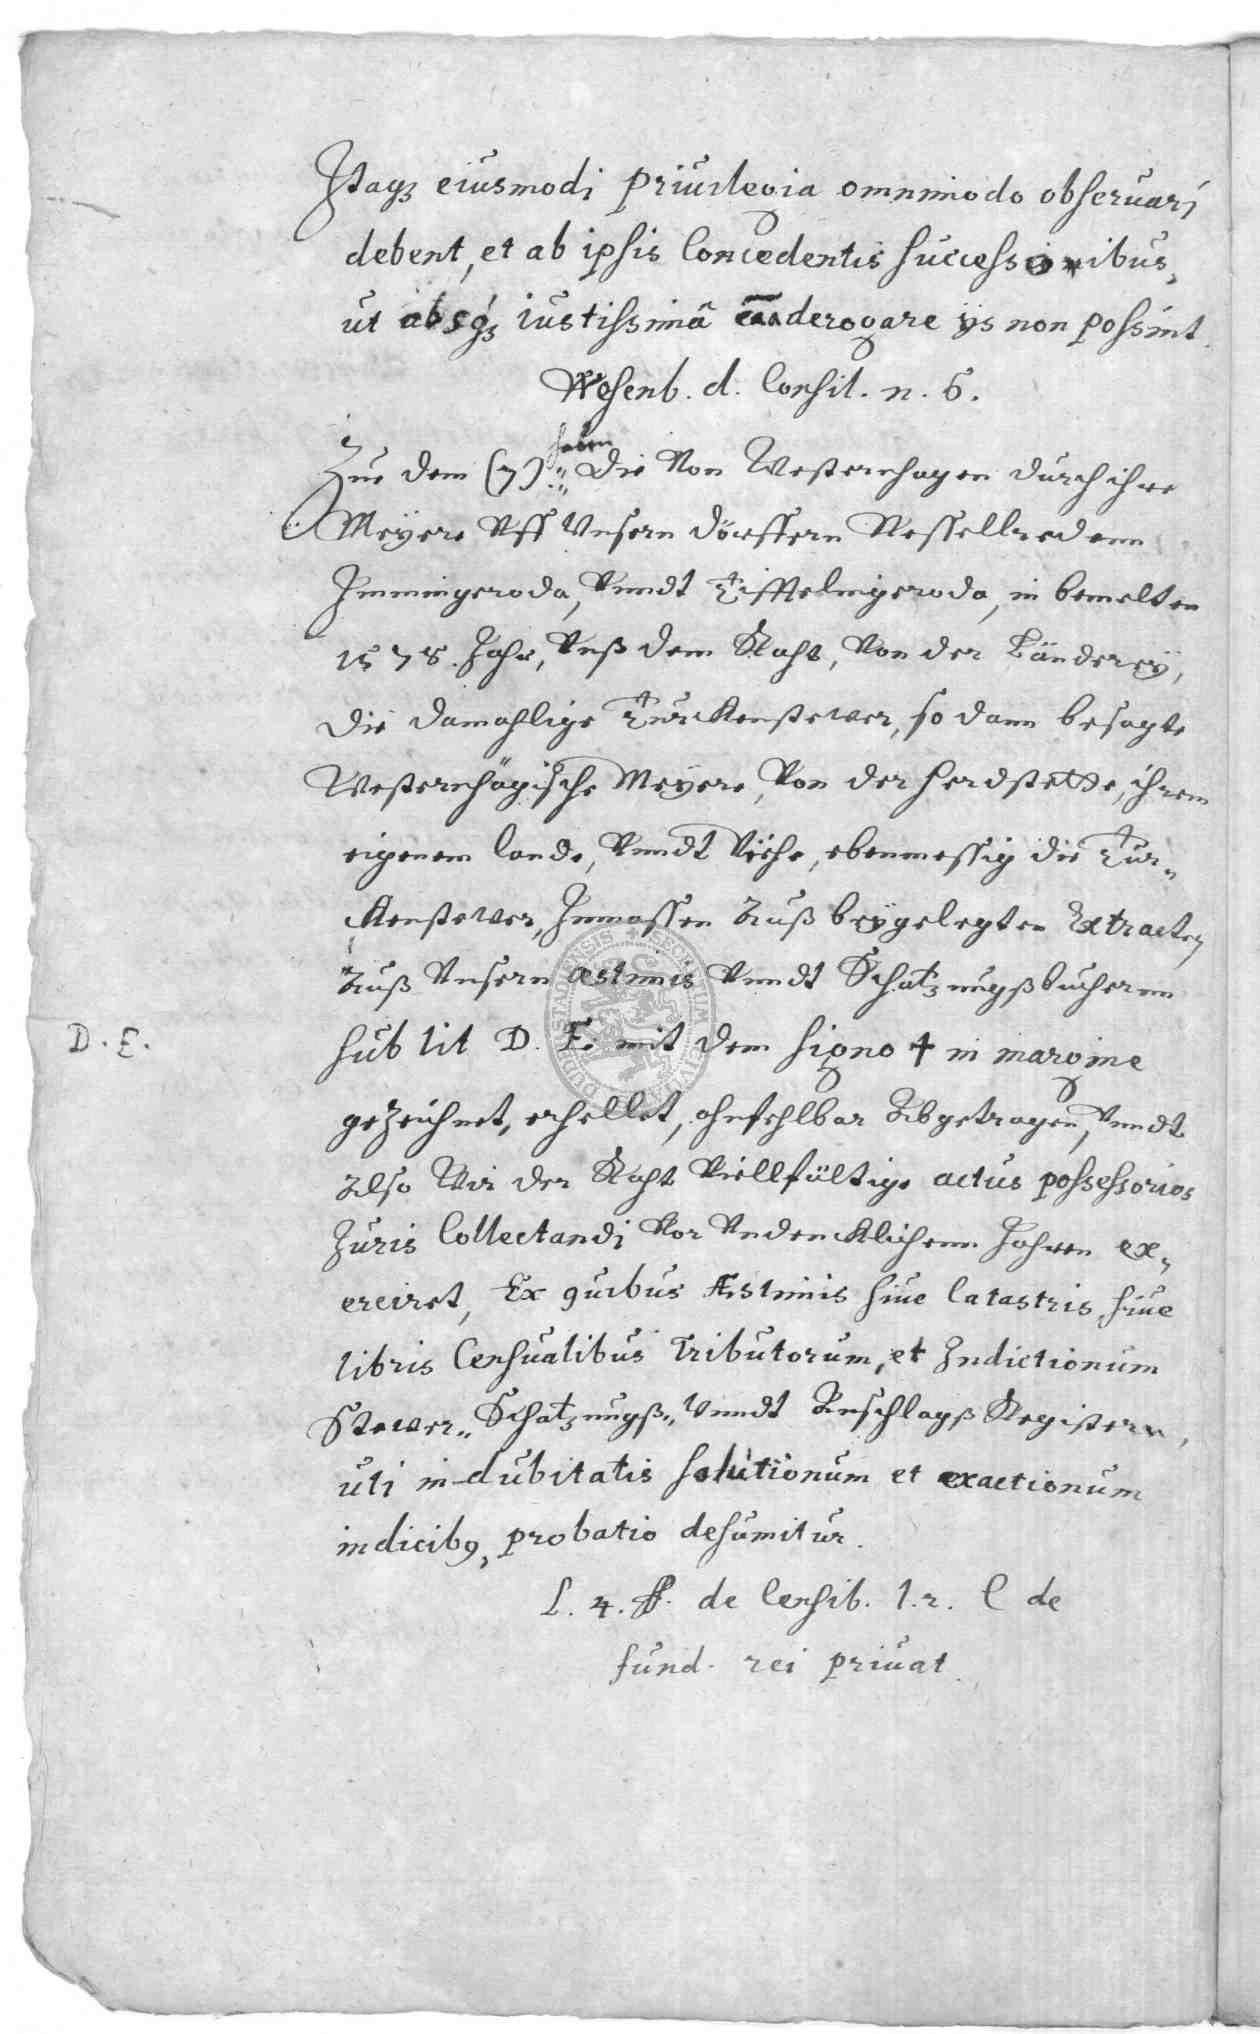 Itaqȝ eiusmodi priuilegia omnimodo obseruari
debent, et ab ipsis Concedentis successoribus,
ut absqȝ iustissimâ caâ derogare ijs non possint.
Wesenb. d. Consil. n. 6.
haben
Zue dem (7) die Von Westernhagen durch ihre
Meyere Vff Vnsern dörffern Nesselredenn
Immingeroda, Vnndt Tifftelingeroda, in bemelten
1578. Jahr, Vnß dem Raht, Von der Länderey,
die damahlige Türckenstewer, so dann besagte
Westernhägische Meyere, Von der herdstette, ihrem
eigenem lande, Vnndt Viehe, ebenmessig die Tür„
ckenstewer, Inmassen Auß beygelegten Extracten
Auß Vnsern æstimis Vnndt Schatzungßbüchernn
D. E.
sub lit D. E. mit dem signo + in margine
gezeichnet, erhellet, ohnfehlbar Abgetragen, Vnndt
Also Wir der Raht Viellfältige actus possessorios
Juris Collectandi Vor Vndencklichenn Jahren ex„
erciret, Ex quibus Æstimis siue Catastris, siue
libris Censualibus Tributorum, et Indictionum
Stewer„ Schatzungß„ Vnndt Anschlagß Registern,
uti indubitatis solutionum et exactionum
indicibꝰ, probatio desumitur.
L. 4. ff. de Censib. l. 2. C de
fund. rei priuat.